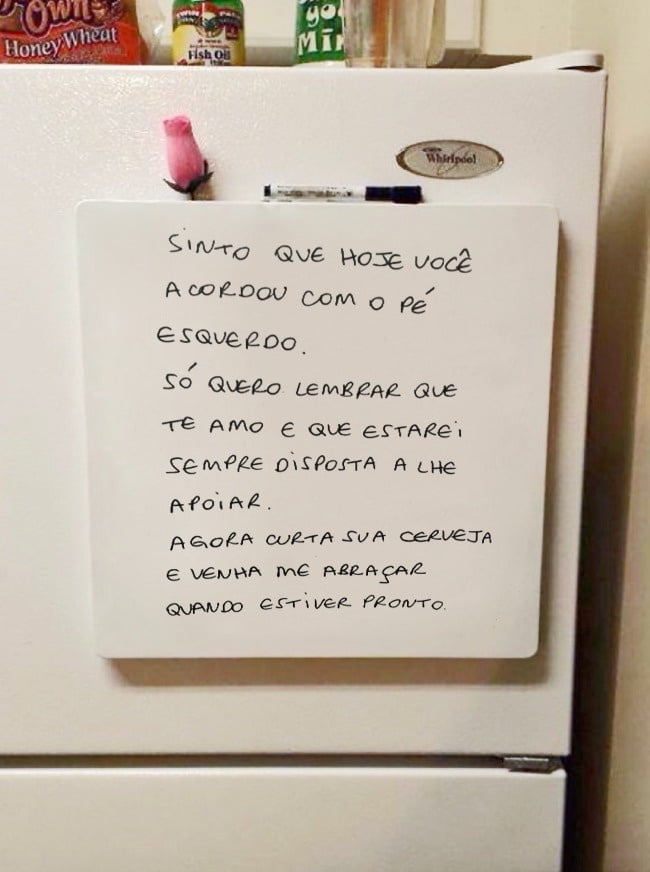 Own
Honey Wheat
TWIN
Fish Oil
you
Mi
Whirlpool
SINTO QUE HOJE VOCÊ
ACORDOU COM O PÉ
ESQUERDO.
SÓ QUERO LEMBRAR QUE
TE AMO E QUE ESTAREI
SEMPRE DISPOSTA A LHE
APOIAR.
AGORA CURTA SUA CERVEJA
E VENHA ME ABRAÇAR
QUANDO ESTIVER PRONTO.